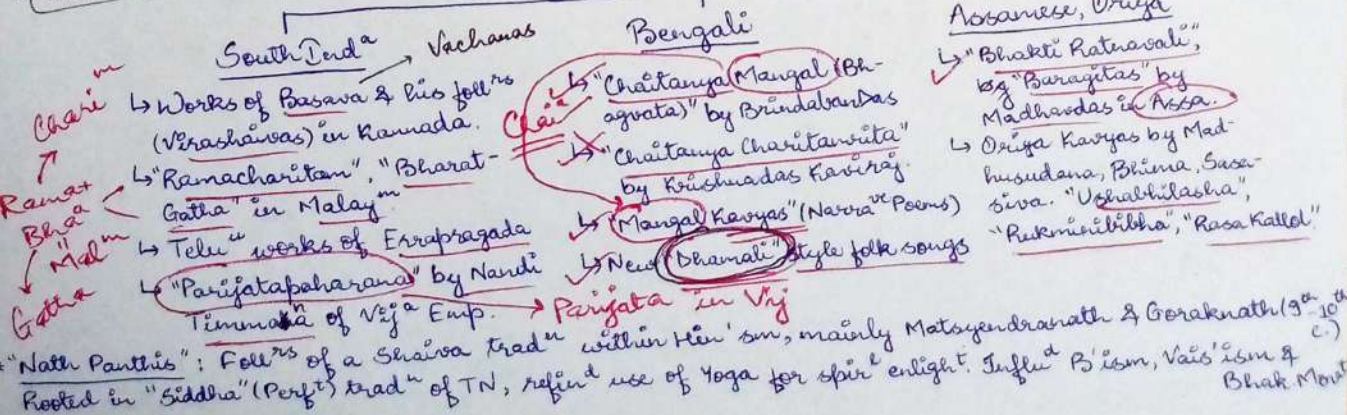 South Ind^a
→ Vachanas
↳ Works of Basava & his foll^rs
(Virashaivas) in Kannada.
↳ "Ramacharitam", "Bharat-
Gatha" in Malay^m
↳ Telu^u works of Errapragada
↳ "Parijatapaharana" by Nandi
Timmana of Vij^a Emp.
Chari^m
Rama +
Bha^a
"
Mal^m
Gatha
Bengali
↳ "Chaitanya Mangal (Bh-
agvata)" by Brindaban Das
Chai^a
↳ "Chaitanya Charitamrita"
by Krishnadas Kaviraj.
↳ "Mangal Kavyas" (Narra^ve Poems)
↳ New "Dhamali" style folk songs
→ Parijata in Vij
Assamese, Oriya
↳ "Bhakti Ratnavali",
"Baragitas" by
Madhavdas in Assa.
↳ Oriya Kavyas by Mad-
husudana, Bhima, Sasa-
siva. "Ushabhilasha",
"Rukminibibha", "Rasa Kallol"
"Nath Panthis": Foll^rs of a Shaiva trad^n within Hin'sm, mainly Matsyendranath & Goraknath (9^th-10^th c.)
Rooted in "Siddha" (Perf^t) trad^n of TN, refin^d use of Yoga for spir^l enligh^t. Influ^d B'ism, Vais'ism &
Bhak Mov^t